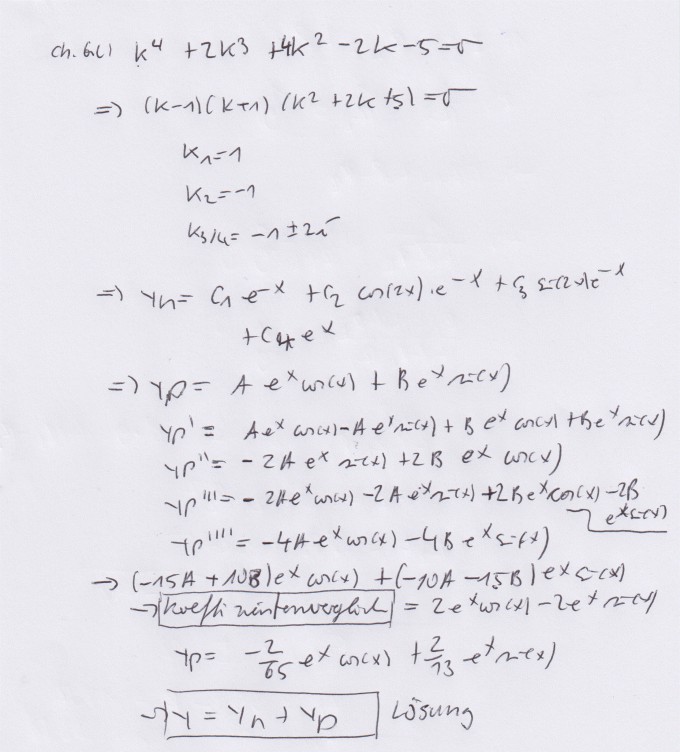 ch. Gl) k⁴ + 2k³ + 4k² - 2k - 5 = 0
=> (k-1)(k+1)(k² + 2k + 5) = 0
k₁ = 1
k₂ = -1
k₃/₄ = -1 ± 2i
=> yₕ = C₁ e⁻ˣ + C₂ cos(2x) · e⁻ˣ + C₃ sin(2x) e⁻ˣ
+ C₄ eˣ
=> yp = A eˣ cos(x) + B eˣ sin(x)
yp' = A eˣ cos(x) - A eˣ sin(x) + B eˣ cos(x) + B eˣ sin(x)
yp'' = -2A eˣ sin(x) + 2B eˣ cos(x)
yp''' = -2A eˣ cos(x) - 2A eˣ sin(x) + 2B eˣ cos(x) - 2B
eˣ sin(x)
yp'''' = -4A eˣ cos(x) - 4B eˣ sin(x)
→ (-15A + 10B) eˣ cos(x) + (-10A - 15B) eˣ sin(x)
→ Koeffizientenvergleich = 2eˣ cos(x) - 2eˣ sin(x)
yp = -2/65 eˣ cos(x) + 2/13 eˣ sin(x)
→ y = yₕ + yp Lösung